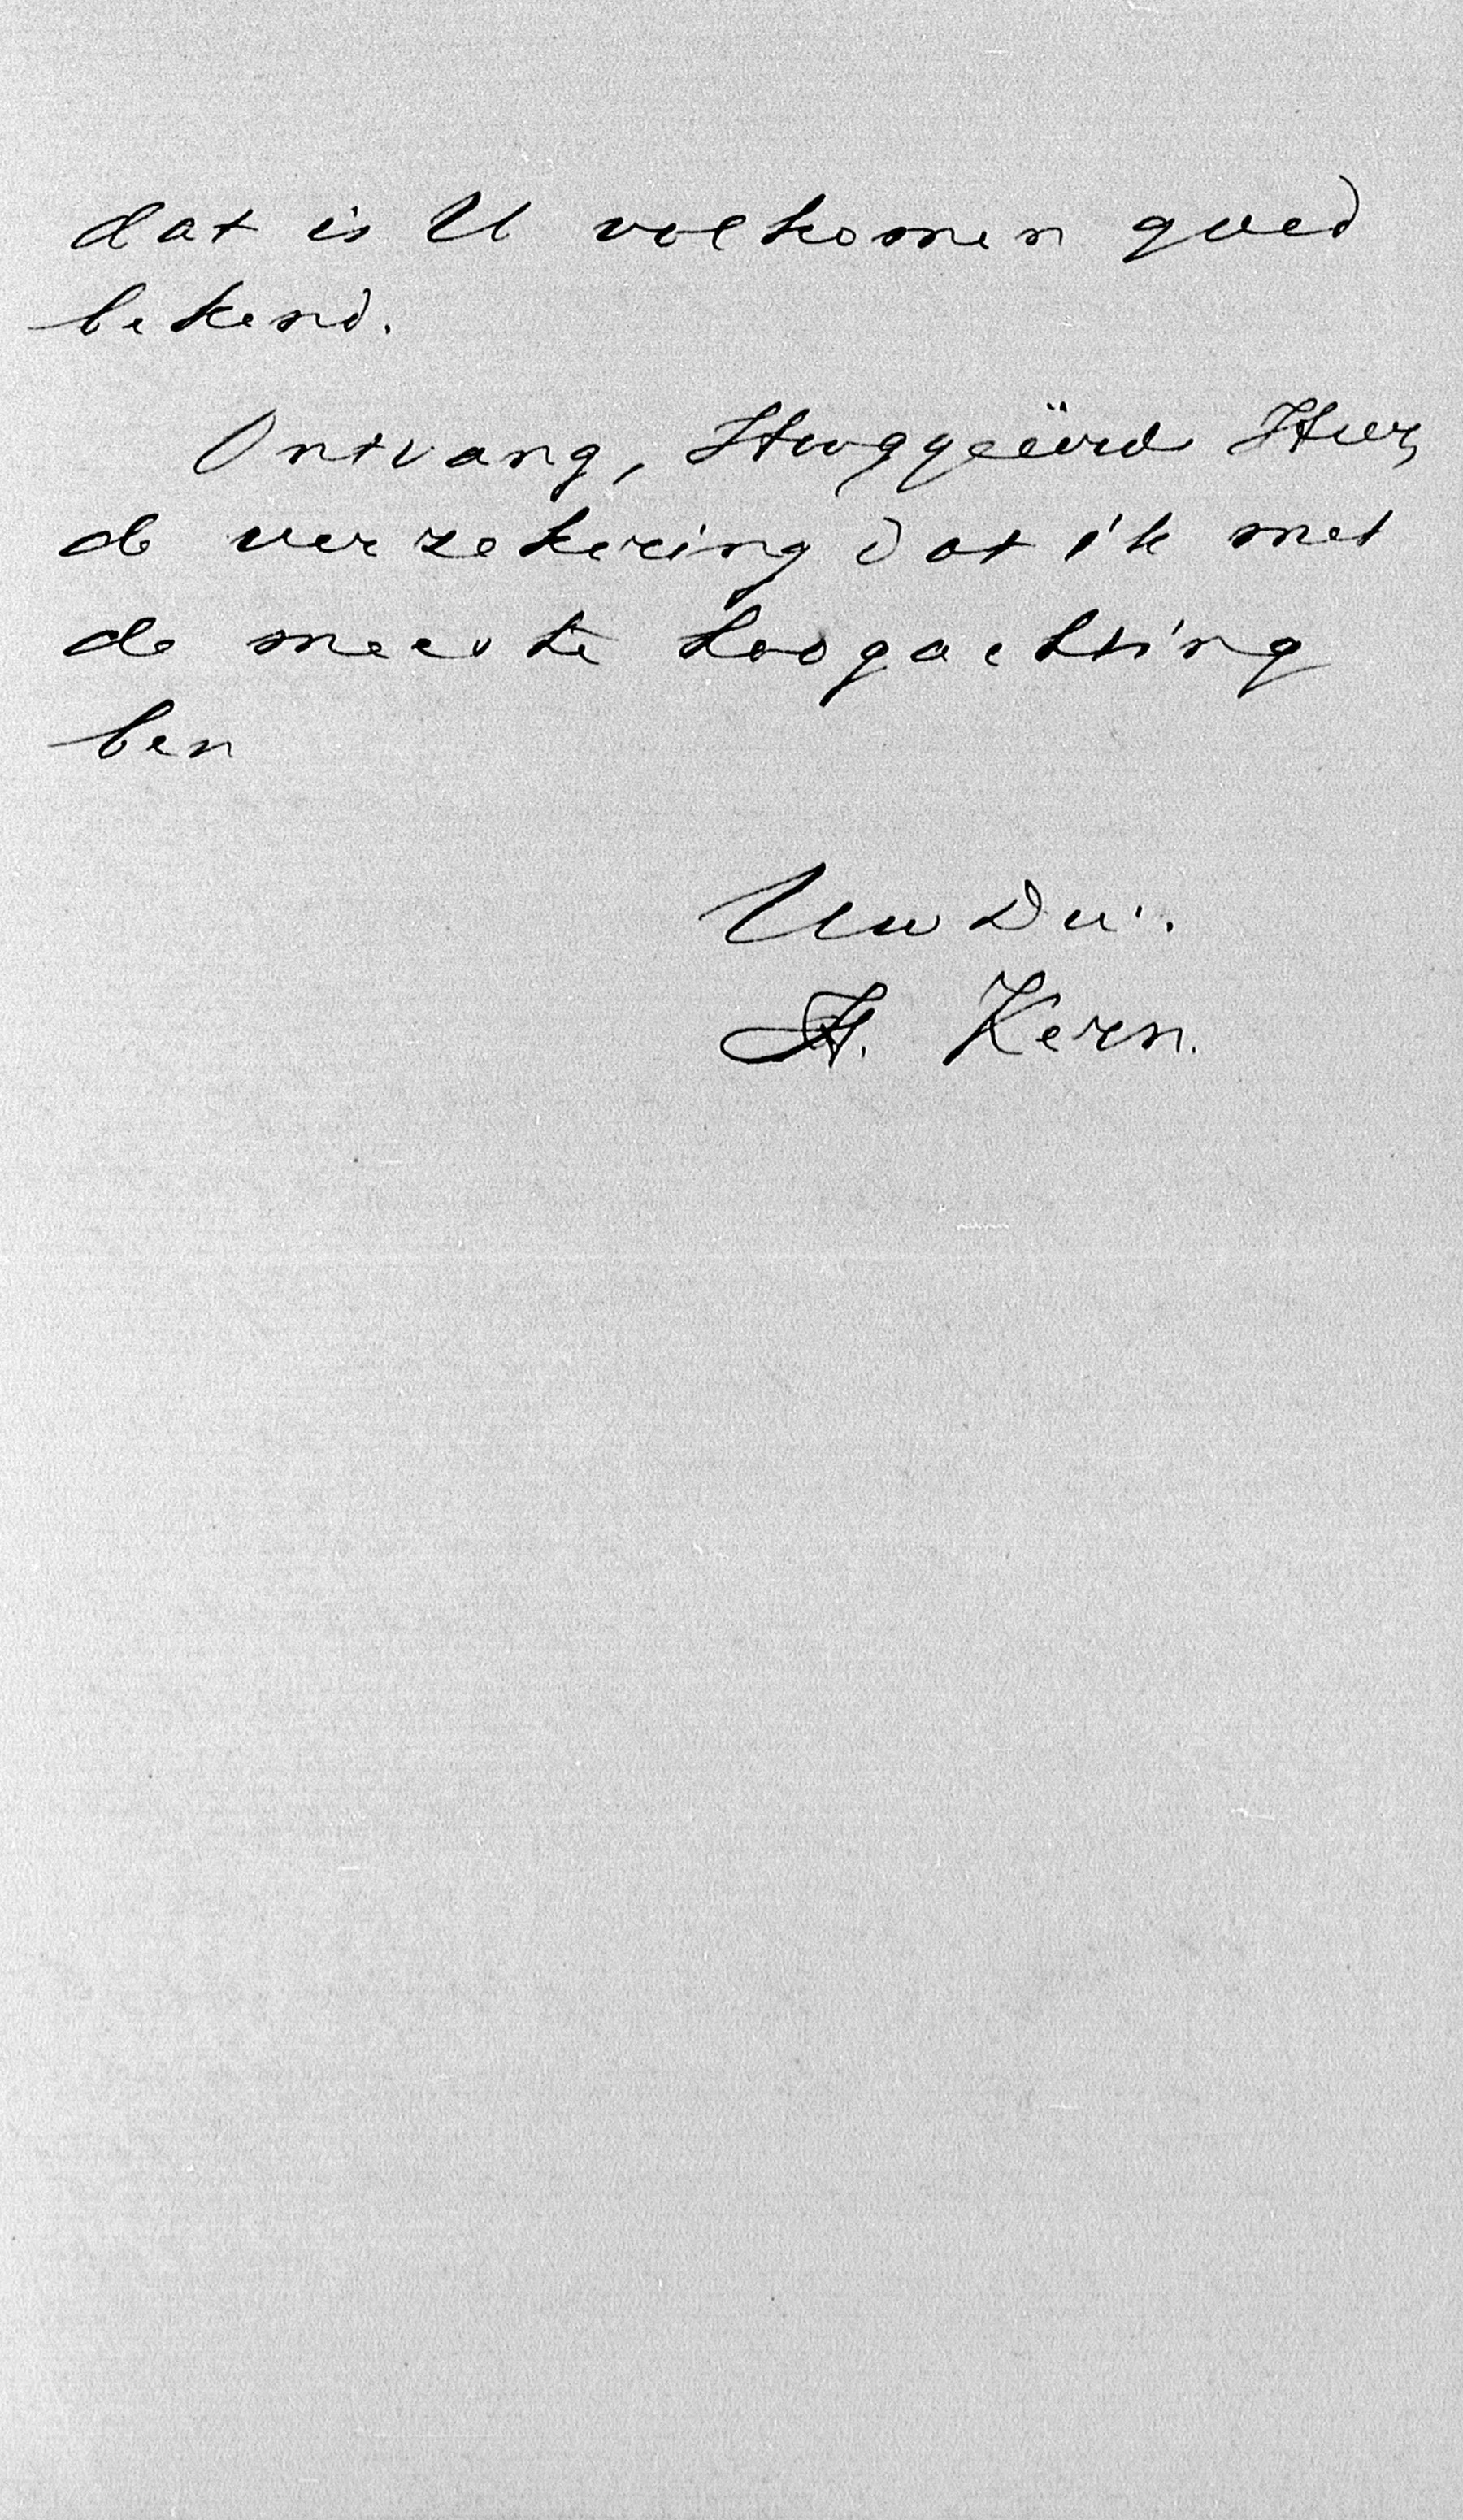 dat is U volkomen goed
bekend.
Ontvang, Hooggeëerde Heer,
de verzekering dat ik met
de meeste hoogachting
ben
Uw Dv.
H. Kern.